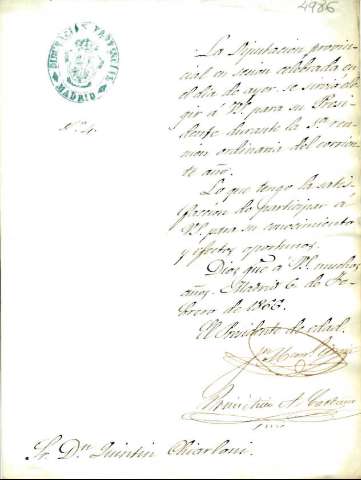 4986
DIPUTACION PROVINCIAL
MADRID
La Diputacion provin-
cial en sesion celebrada en
el dia de ayer se sirvió ele-
gir á V.I. para su Presi-
dente durante la 1ª reu-
nion ordinaria del corrien-
te año.
Lo que tengo la satis-
faccion de participar á
V.I. para su conocimiento
y efectos oportunos.
Dios gue á V.I. muchos
años. Madrid 6 de Fe-
brero de 1866.
El Presidente de edad.
Sr. Dn. Quintin Chiarloni.